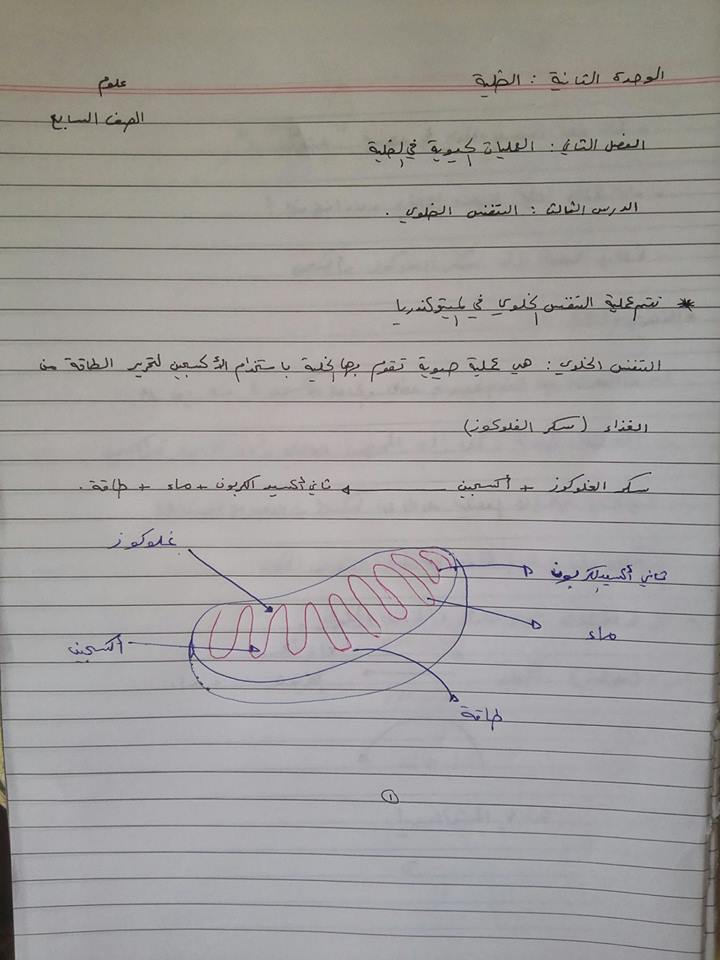 الوحدة الثانية : الخلية
علوم
الصف السابع
الفصل الثاني : العمليات الحيوية في الخلية
الدرس الثالث : التنفس الخلوي .
* تتم عملية التنفس الخلوي في الميتوكندريا
التنفس الخلوي : هي عملية حيوية تقوم بها الخلية باستخدام الأكسجين لتحرير الطاقة من
الغذاء (سكر الغلوكوز)
سكر الغلوكوز + أكسجين ← ثاني أكسيد الكربون + ماء + طاقة .
غلوكوز
ثاني أكسيد الكربون
ماء
أكسجين
طاقة
١